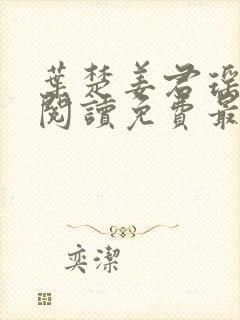 葉楚姜君瑶
閱讀免費最
奕潔